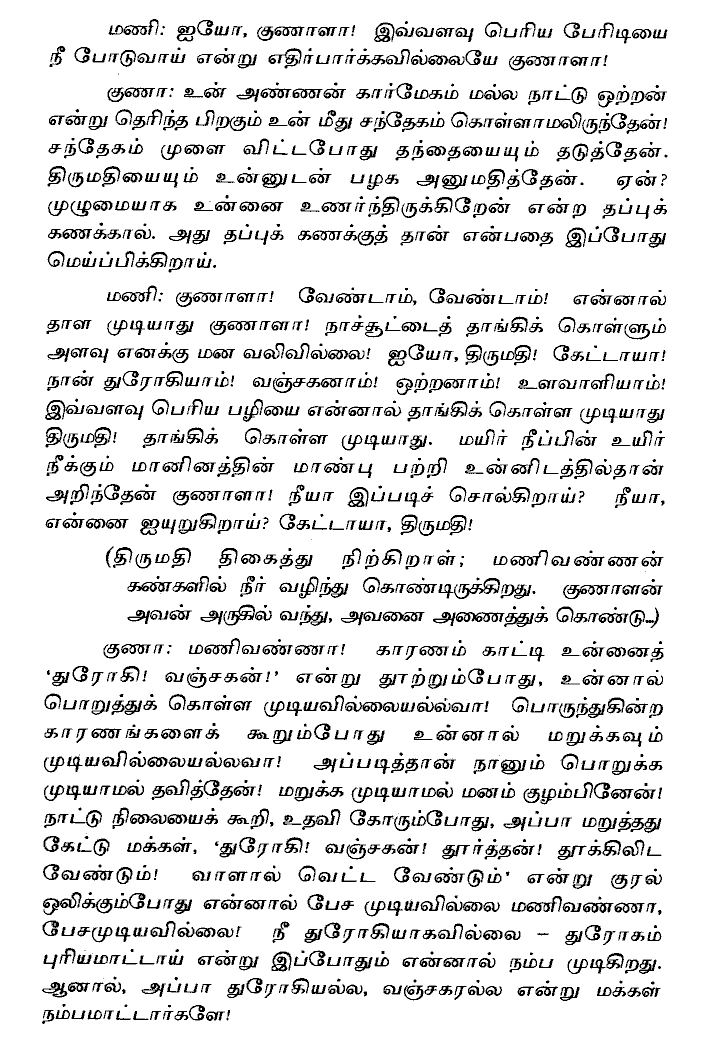 மணி: ஐயோ, குணாளா! இவ்வளவு பெரிய பேரிடியை
நீ போடுவாய் என்று எதிர்பார்க்கவில்லையே குணாளா!
குணா: உன் அண்ணன் கார்மேகம் மல்ல நாட்டு ஒற்றன்
என்று தெரிந்த பிறகும் உன் மீது சந்தேகம் கொள்ளாமலிருந்தேன்!
சந்தேகம் முளை விட்டபோது தந்தையையும் தடுத்தேன்.
திருமதியையும் உன்னுடன் பழக அனுமதித்தேன். ஏன்?
முழுமையாக உன்னை உணர்ந்திருக்கிறேன் என்ற தப்புக்
கணக்கால். அது தப்புக் கணக்குத் தான் என்பதை இப்போது
மெய்ப்பிக்கிறாய்.
மணி: குணாளா! வேண்டாம், வேண்டாம்! என்னால்
தாள முடியாது குணாளா! நாச்சூட்டைத் தாங்கிக் கொள்ளும்
அளவு எனக்கு மன வலிவில்லை! ஐயோ, திருமதி! கேட்டாயா!
நான் துரோகியாம்! வஞ்சகனாம்! ஒற்றனாம்! உளவாளியாம்!
இவ்வளவு பெரிய பழியை என்னால் தாங்கிக் கொள்ள முடியாது
திருமதி! தாங்கிக் கொள்ள முடியாது. மயிர் நீப்பின் உயிர்
நீக்கும் மானினத்தின் மாண்பு பற்றி உன்னிடத்தில்தான்
அறிந்தேன் குணாளா! நீயா இப்படிச் சொல்கிறாய்? நீயா,
என்னை ஐயுறுகிறாய்? கேட்டாயா, திருமதி!
(திருமதி திகைத்து நிற்கிறாள்; மணிவண்ணன்
கண்களில் நீர் வழிந்து கொண்டிருக்கிறது. குணாளன்
அவன் அருகில் வந்து, அவனை அணைத்துக் கொண்டு...)
குணா: மணிவண்ணா! காரணம் காட்டி உன்னைத்
'துரோகி! வஞ்சகன்!' என்று தூற்றும்போது, உன்னால்
பொறுத்துக் கொள்ள முடியவில்லையல்ல்வா! பொருந்துகின்ற
காரணங்களைக் கூறும்போது உன்னால் மறுக்கவும்
முடியவில்லையல்லவா! அப்படித்தான் நானும் பொறுக்க
முடியாமல் தவித்தேன்! மறுக்க முடியாமல் மனம் குழம்பினேன்!
நாட்டு நிலையைக் கூறி, உதவி கோரும்போது, அப்பா மறுத்தது
கேட்டு மக்கள், 'துரோகி! வஞ்சகன்! தூர்த்தன்! தூக்கிலிட
வேண்டும்! வாளால் வெட்ட வேண்டும்' என்று குரல்
ஒலிக்கும்போது என்னால் பேச முடியவில்லை மணிவண்ணா,
பேசமுடியவில்லை! நீ துரோகியாகவில்லை – துரோகம்
புரியமாட்டாய் என்று இப்போதும் என்னால் நம்ப முடிகிறது.
ஆனால், அப்பா துரோகியல்ல, வஞ்சகரல்ல என்று மக்கள்
நம்பமாட்டார்களே!